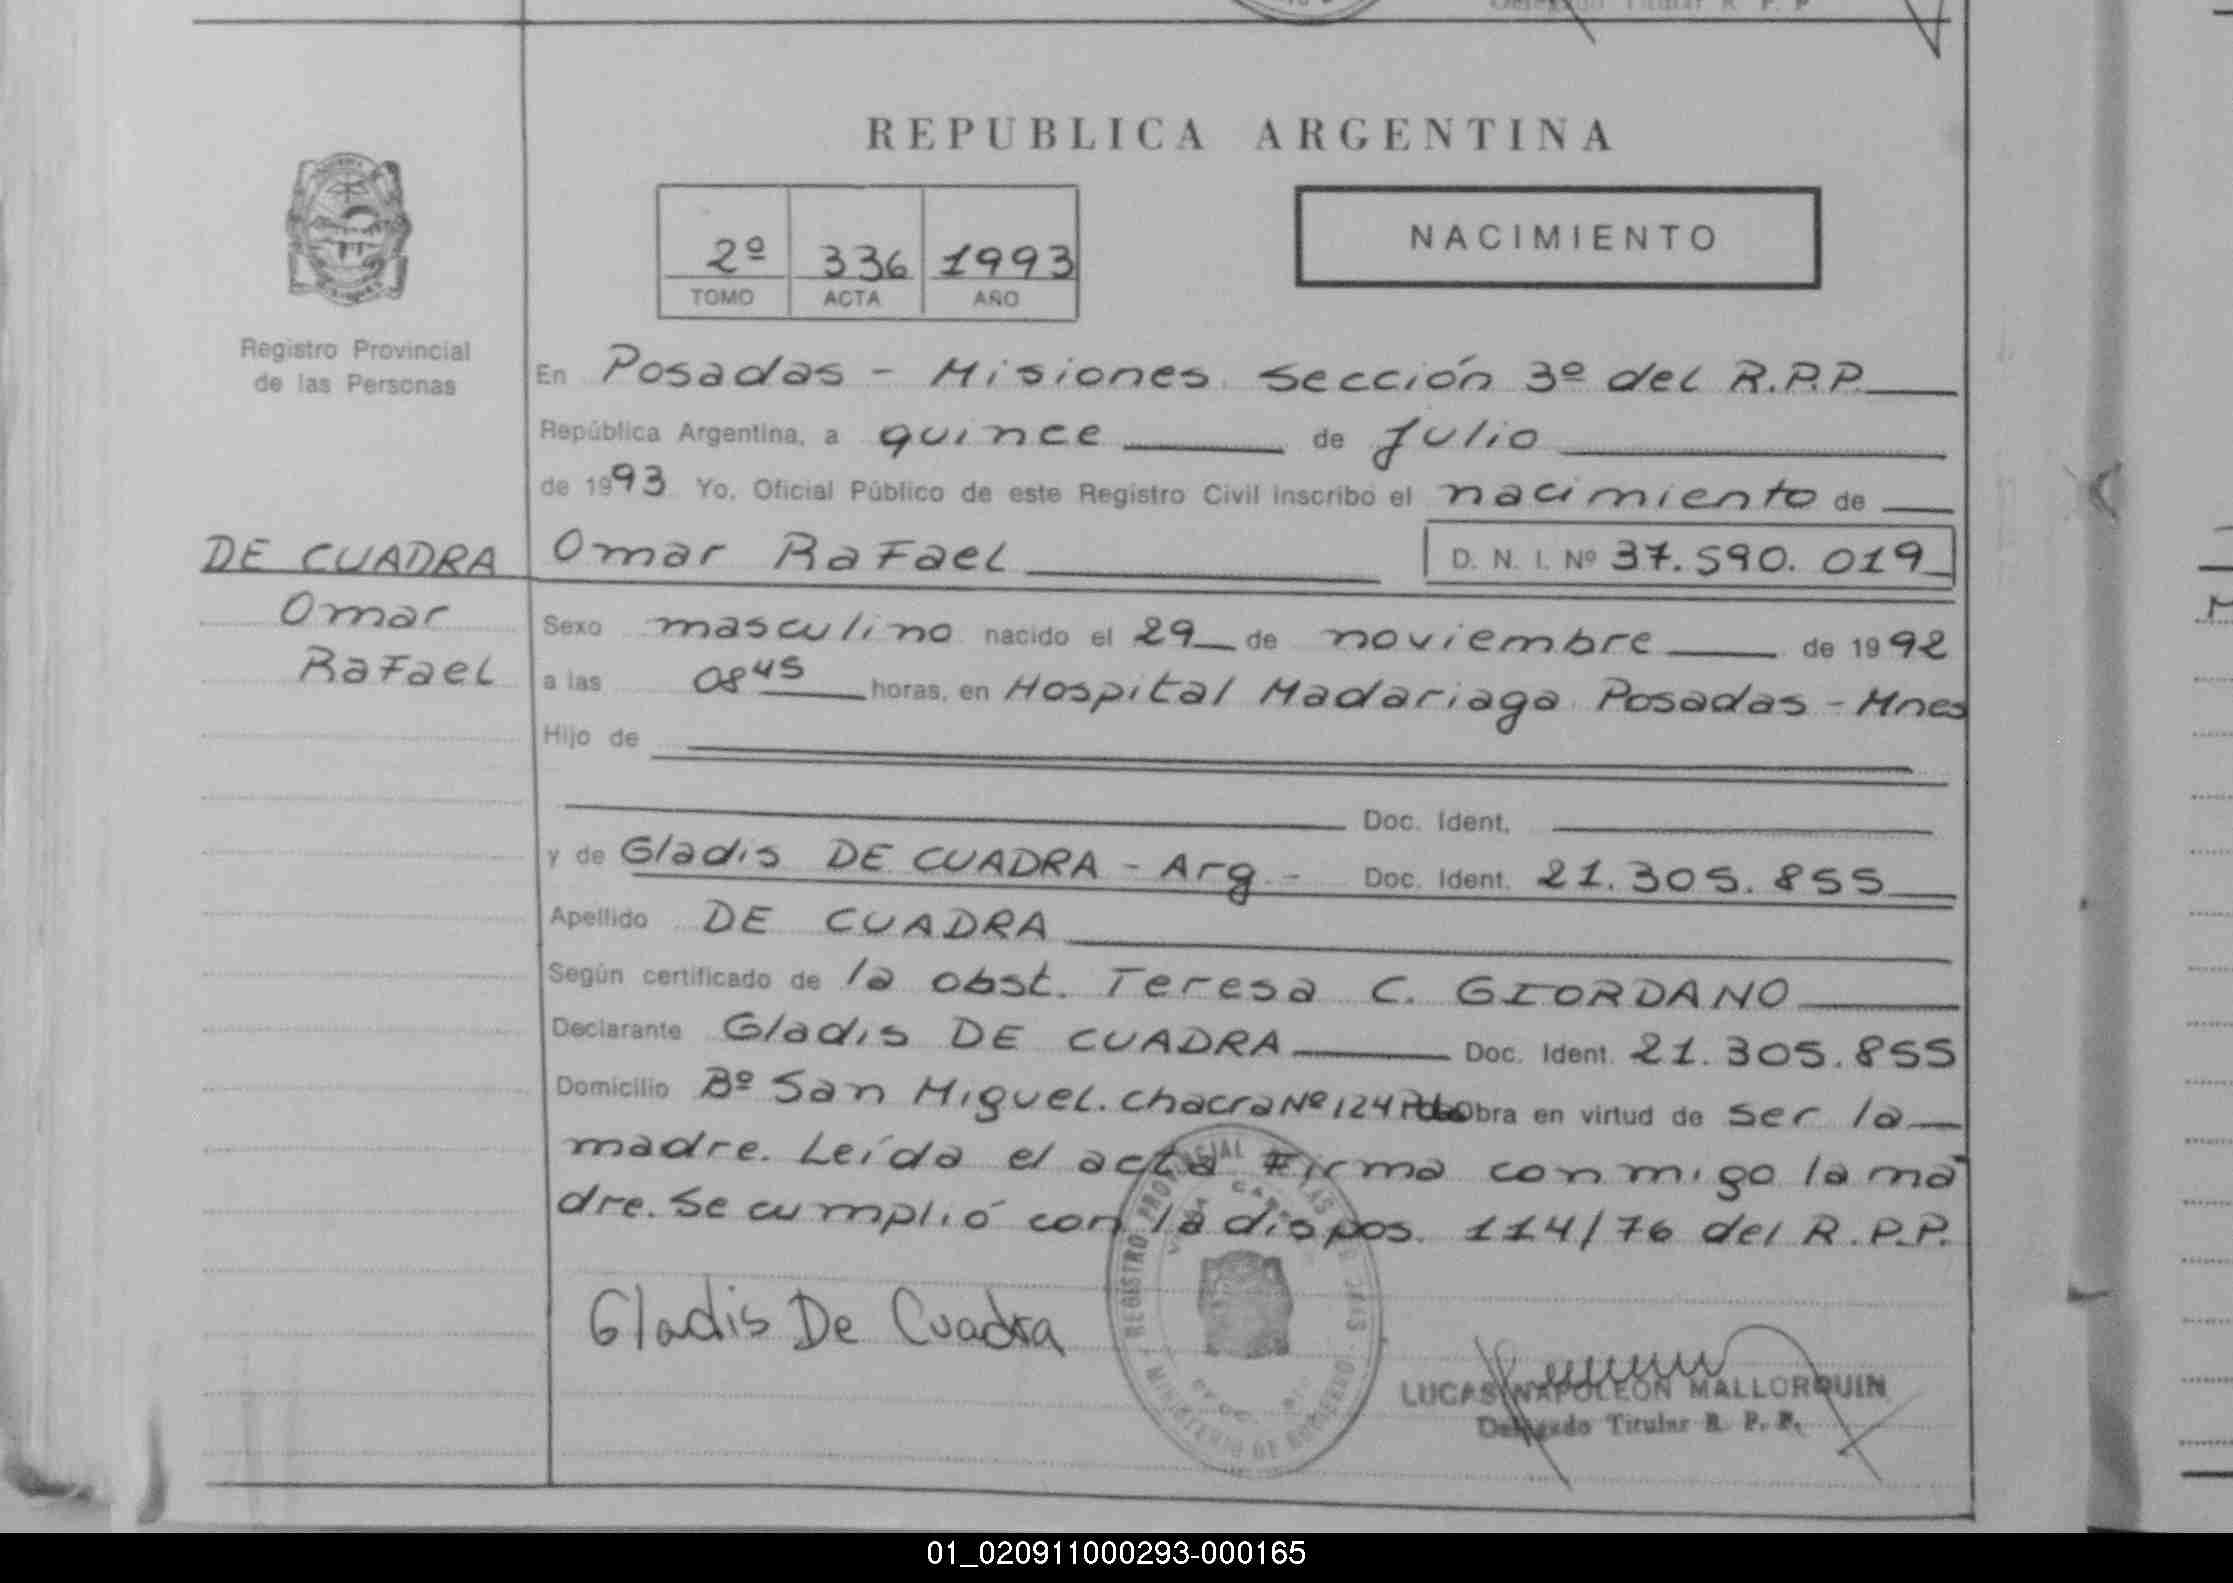 REPUBLICA ARGENTINA
2º 336 1993
TOMO ACTA AÑO
NACIMIENTO
Registro Provincial
de las Personas
En Posadas - Misiones Sección 3º del R.P.P.
República Argentina, a quince de Julio
de 1993 Yo, Oficial Público de este Registro Civil inscribo el nacimiento de
DE CUADRA
Omar
Rafael
Omar Rafael D. N. I. Nº 37.590.019
Sexo masculino nacido el 29 de noviembre de 1992
a las 08 45 horas, en Hospital Madariaga Posadas - Mnes
Hijo de
Doc. Ident.
y de Gladis DE CUADRA - Arg - Doc. Ident. 21.305.855
Apellido DE CUADRA
Según certificado de la obst. Teresa C. GIORDANO
Declarante Gladis DE CUADRA Doc. Ident. 21.305.855
Domicilio Bº San Miguel. chacra Nº 124 Obra en virtud de ser la
madre. Leída el acta Firma conmigo la ma
dre. Se cumplió con la dispos. 114/76 del R.P.P.
Gladis De Cuadra
REGISTRO PROVINCIAL DE LAS PERSONAS
MINISTERIO DE GOBIERNO
LUCAS NAPOLEON MALLORQUIN
Delegado Titular R. P. P.
01_020911000293-000165